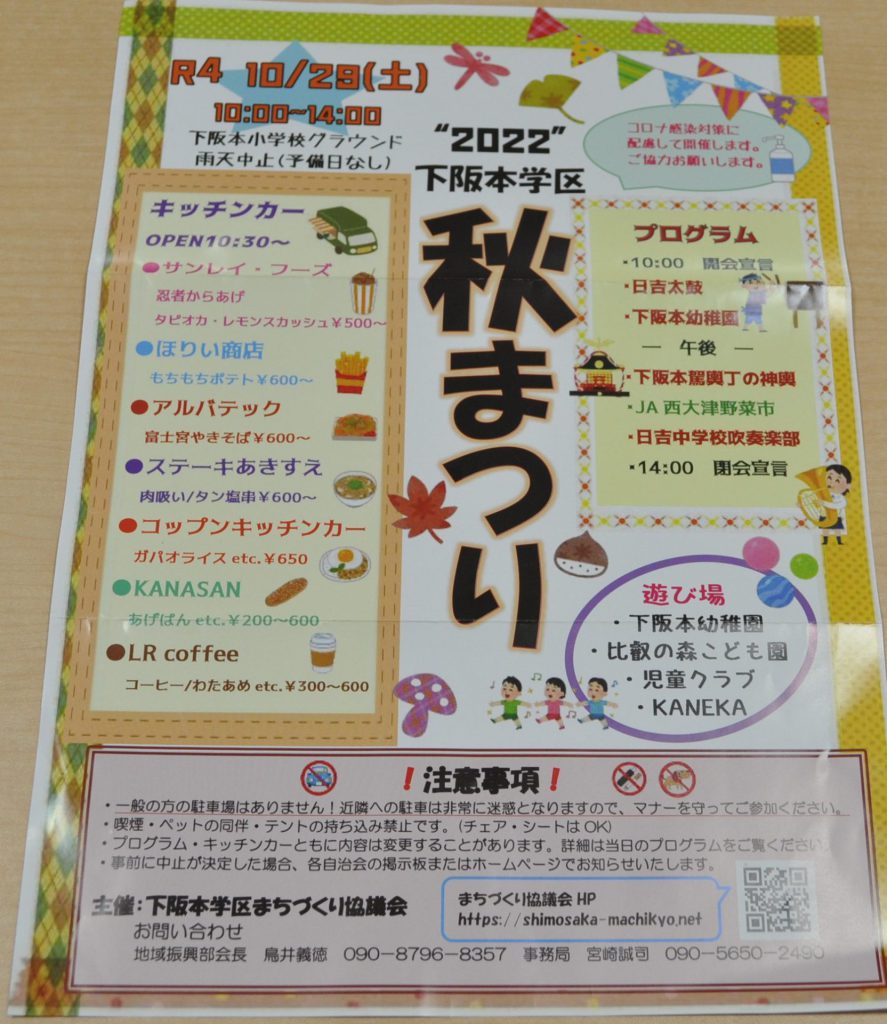 R4 10/29(土)
10:00~14:00
下阪本小学校グラウンド
雨天中止(予備日なし)
“2022”
下阪本学区
秋まつり
コロナ感染対策に
配慮して開催します。
ご協力お願いします。
キッチンカー
OPEN10:30～
●サンレイ・フーズ
忍者からあげ
タピオカ・レモンスカッシュ¥500～
●ほりい商店
もちもちポテト¥600～
●アルバテック
富士宮やきそば¥600～
●ステーキあきすえ
肉吸い/タン塩串¥600～
●コップンキッチンカー
ガパオライス etc.¥650
●KANASAN
あげぱん etc.¥200～600
●LR coffee
コーヒー/わたあめ etc.¥300～600
プログラム
・10:00 開会宣言
・日吉太鼓
・下阪本幼稚園
― 午後 ―
・下阪本駕輿丁の神輿
・JA 西大津野菜市
・日吉中学校吹奏楽部
・14:00 閉会宣言
遊び場
・下阪本幼稚園
・比叡の森こども園
・児童クラブ
・KANEKA
！注意事項！
・一般の方の駐車場はありません！近隣への駐車は非常に迷惑となりますので、マナーを守ってご参加ください。
・喫煙・ペットの同伴・テントの持ち込み禁止です。(チェア・シートはOK)
・プログラム・キッチンカーともに内容は変更することがあります。詳細は当日のプログラムをご覧ください。
・事前に中止が決定した場合、各自治会の掲示板またはホームページでお知らせいたします。
主催：下阪本学区まちづくり協議会
お問い合わせ
まちづくり協議会 HP
https://shimosaka-machikyo.net
地域振興部会長 鳥井義徳 090-8796-8357 事務局 宮崎誠司 090-5650-2490